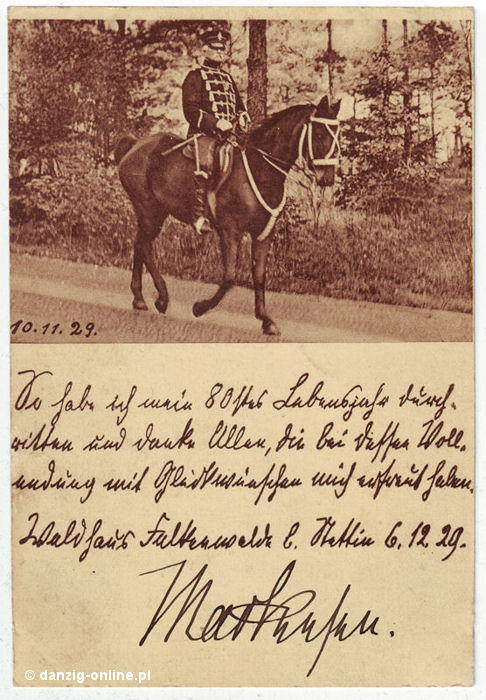 10.11.29.
So habe ich mein 80stes Lebensjahr durch-
ritten und danke Allen, die bei dessen Voll-
endung mit Glückwünschen mich erfreut haben.
Waldhaus Falkenwalde b. Stettin 6.12.29.
Mackensen.
© danzig-online.pl